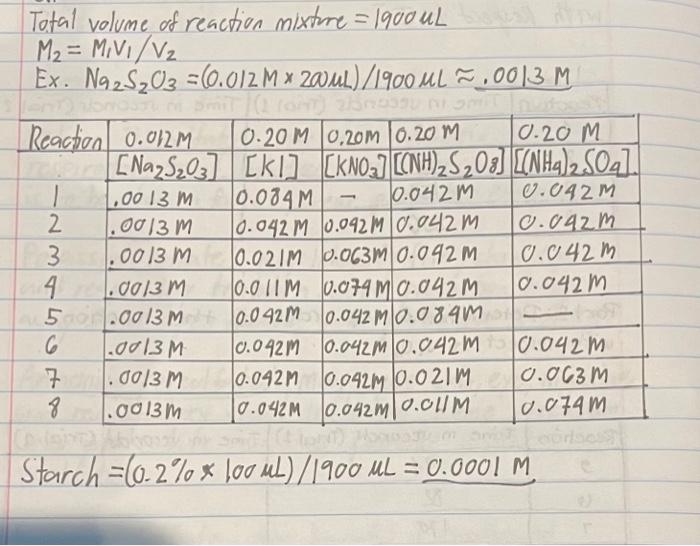 Total volume of reaction mixture = 1900 uL
M₂ = M₁V₁/V₂
Ex. Na₂S₂O₃ = (0.012 M × 200 uL)/1900 uL ≈ .0013 M
Reaction 0.012 M 0.20 M 0.20M 0.20 M 0.20 M
[Na₂S₂O₃] [KI] [KNO₃] [(NH)₂S₂O₈] [(NH₄)₂SO₄]
1 .0013 M 0.084M - 0.042M 0.042M
2 .0013 M 0.042M 0.042M 0.042M 0.042M
3 .0013 M 0.021M 0.063M 0.042M 0.042M
4 .0013 M 0.011M 0.074M 0.042M 0.042M
5 .0013 M 0.042M 0.042M 0.084M —
6 .0013 M 0.042M 0.042M 0.042M 0.042M
7 .0013 M 0.042M 0.042M 0.021M 0.063M
8 .0013 M 0.042M 0.042M 0.011M 0.074M
Starch = (0.2% × 100 uL)/1900 uL = 0.0001 M